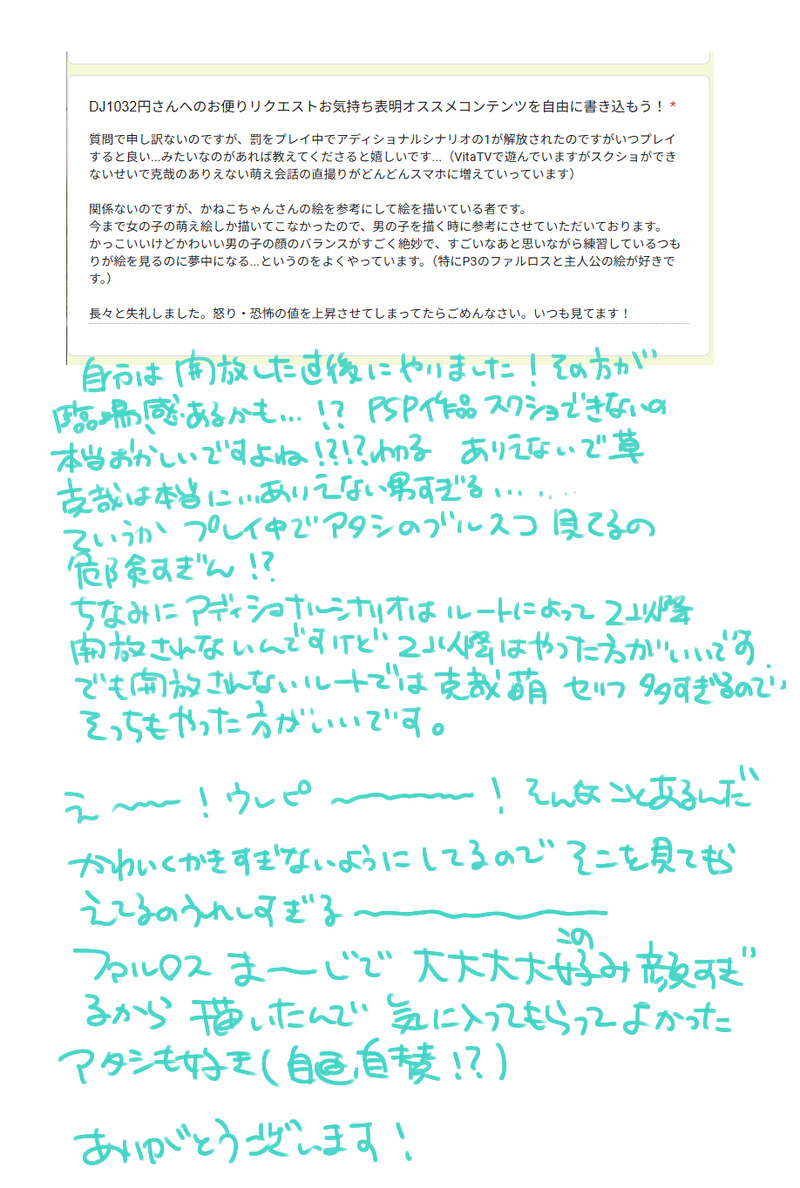 DJ1032円さんへのお便りリクエストお気持ち表明オススメコンテンツを自由に書き込もう！ *
質問で申し訳ないのですが、罰をプレイ中でアディショナルシナリオの1が解放されたのですがいつプレイ
すると良い...みたいなのがあれば教えてくださると嬉しいです...（VitaTVで遊んでいますがスクショができ
ないせいで克哉のありえない萌え会話の直撮りがどんどんスマホに増えていっています）
関係ないのですが、かねこちゃんさんの絵を参考にして絵を描いている者です。
今まで女の子の萌え絵しか描いてこなかったので、男の子を描く時に参考にさせていただいております。
かっこいいけどかわいい男の子の顔のバランスがすごく絶妙で、すごいなあと思いながら練習しているつも
りが絵を見るのに夢中になる...というのをよくやっています。（特にP3のファルロスと主人公の絵が好きで
す。）
長々と失礼しました。怒り・恐怖の値を上昇させてしまってたらごめんなさい。いつも見てます！
自分は開放した直後にやりました！その方が
臨場感あるかも…!? PSP作品スクショできないの
本当おかしいですよね!?!?わかる ありえないで草
克哉は本当に…ありえない男すぎる……
ていうか プレイ中でアタシのブルスコ 見てるの
危険すぎん!?
ちなみにアディショナルシナリオはルートによって2以降
開放されないんですけど2以降はやった方がいいです
でも開放されないルートでは克哉萌 セリフ多すぎるので
そっちもやった方がいいです。
え〜〜！ウレピ〜〜〜〜！そんなことあるんだ
かわいくかきすぎないようにしてるのでそこを見てもら
えてるのうれしすぎる〜〜〜〜
ファルロス まーじで 大大大大好み顔すぎ
この
るから 描いたんで 気に入ってもらってよかった
アタシも好き(自画自賛!?)
ありがとうございます！